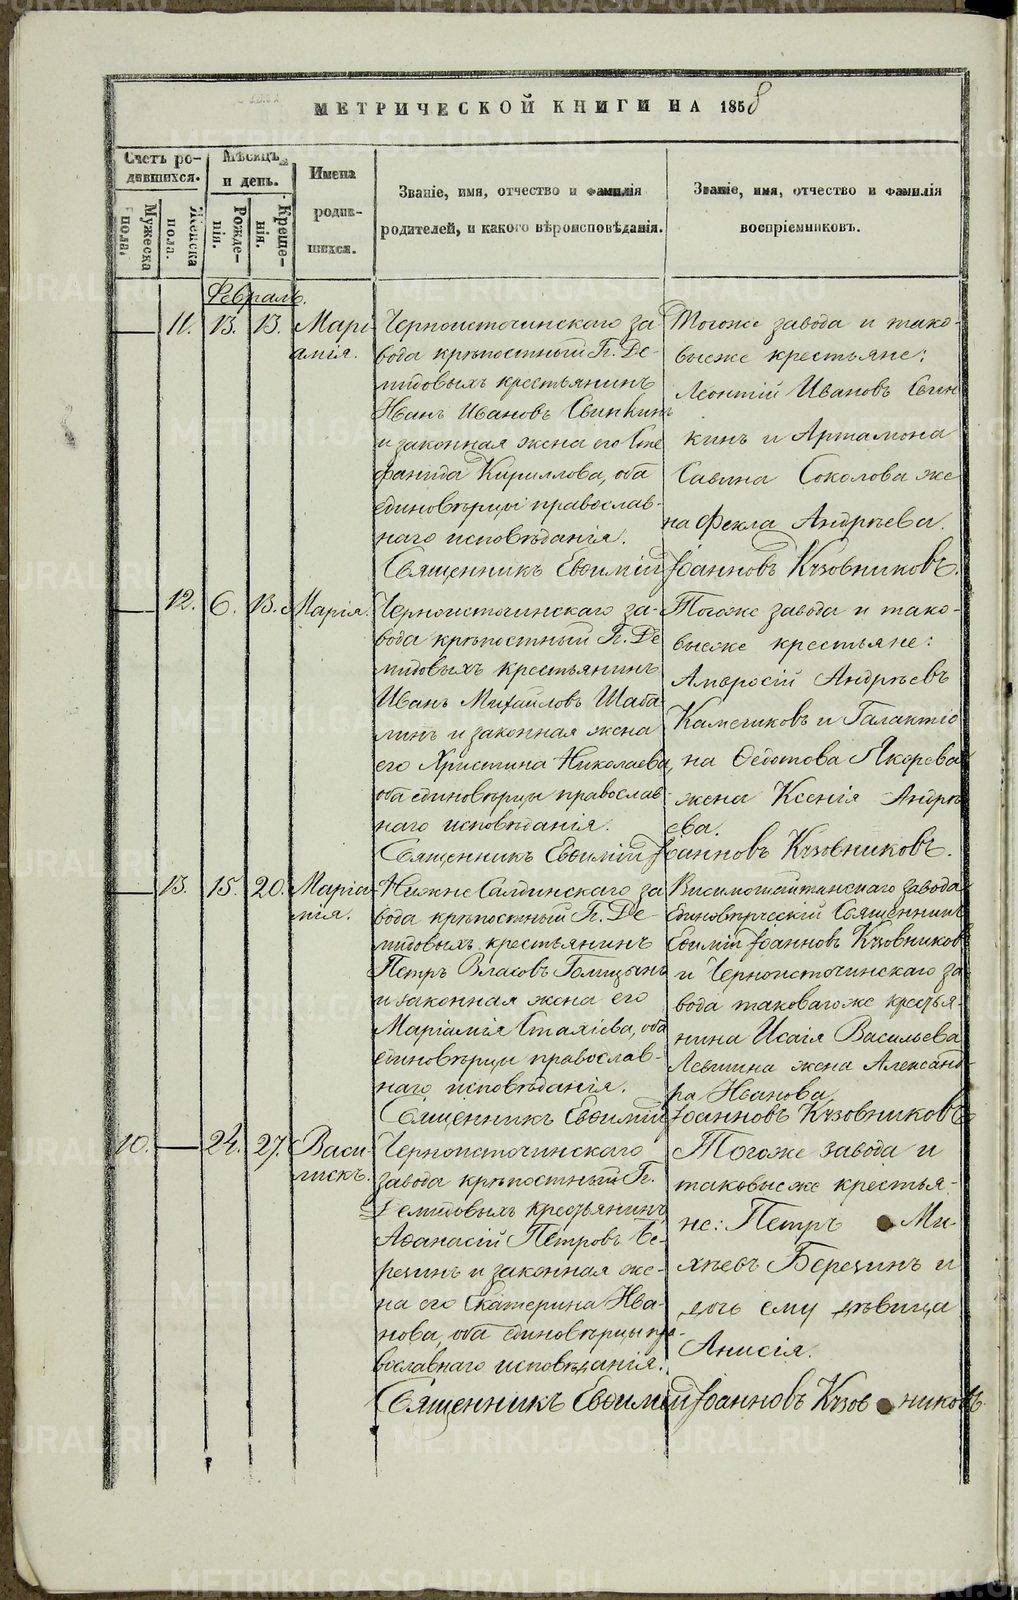 МЕТРИЧЕСКОЙ КНИГИ НА 1858
Счетъ ро-
дившихся.
Мѣсяцъ
и день.
Имена
родив-
шихся.
Званіе, имя, отчество и фамилія
родителей, и какого вѣроисповѣданія.
Званіе, имя, отчество и фамилія
воспріемниковъ.
Мужеска
пола.
Женска
пола.
Рожде-
нія.
Креще-
нія.
Февраль.
11. 13. 13. Марі-
амія.
Черноисточинскаго за
вода крѣпостный Г. Де-
мидовыхъ крестьянинъ
Иванъ Ивановъ Свинкинъ
и законная жена его Сте
фанида Кириллова, оба
единовѣрцы православ-
наго исповѣданія.
Тогоже завода и тако-
выеже крестьяне:
Леонтій Ивановъ Свин
кинъ и Артамона
Савина Соколова же
на Фекла Андрѣева.
Священникъ Евѳимій Іоанновъ Кузовниковъ.
12. 6. 13. Марія.
Черноисточинскаго за-
вода крѣпостный Г. Де
мидовыхъ крестьянинъ
Иванъ Михайловъ Шаба-
линъ и законная жена
его Христина Николаева,
оба единовѣрцы православ
наго исповѣданія.
Тогоже завода и тако-
выеже крестьяне:
Амвросій Андрѣевъ
и Галактіо
на Ѳедотова
жена Ксенія Андрѣ
ева.
Священникъ Евѳимій Іоанновъ Кузовниковъ.
13. 15. 20. Маріа
мія.
Нижне Салдинскаго за
вода крѣпостный Г. Де-
мидовыхъ крестьянинъ
Петръ Власовъ Голицынъ
и законная жена его
Маріамія Стахіева, оба
единовѣрцы православ-
наго исповѣданія.
Висимошайтанскаго завода
Единовѣрческій Священникъ
Евѳимій Іоанновъ Кузовниковъ
и Черноисточинскаго за
вода таковагоже крестья-
нина Исаія Васильева
Левшина жена Александ-
ра Иванова.
Священникъ Евѳимій Іоанновъ Кузовниковъ
10. 24. 27. Васи-
лискъ.
Черноисточинскаго
завода крѣпостный Г.
Демидовыхъ крестьянинъ
Аѳанасій Петровъ Бе-
резинъ и законная же-
на его Екатерина Ива-
нова, оба единовѣрцы пра-
вославнаго исповѣданія.
Тогоже завода и
таковыеже крестья-
не: Петръ Ми-
хѣевъ Березинъ и
дочь ему дѣвица
Анисія.
Священникъ Евѳимій Іоанновъ Кузовниковъ.
METRIKI.GASO-URAL.RU